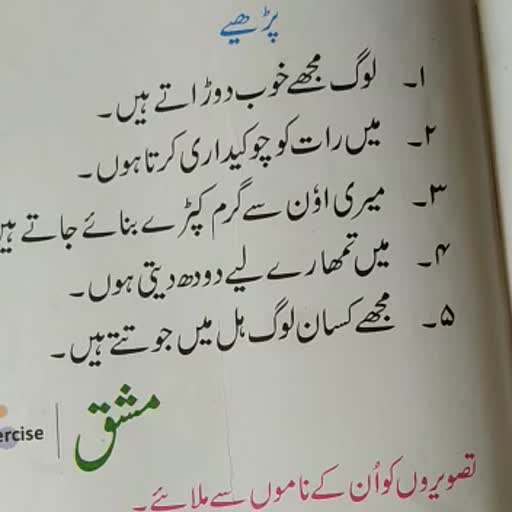 پڑھیے
۱۔ لوگ مجھے خوب دوڑاتے ہیں۔
۲۔ میں رات کو چوکیداری کرتا ہوں۔
۳۔ میری اوٗن سے گرم کپڑے بنائے جاتے ہیں
۴۔ میں تمھارے لیے دودھ دیتی ہوں۔
۵۔ مجھے کسان لوگ ہل میں جوتتے ہیں۔
مشق | ercise
تصویروں کو اُن کے ناموں سے ملائے۔